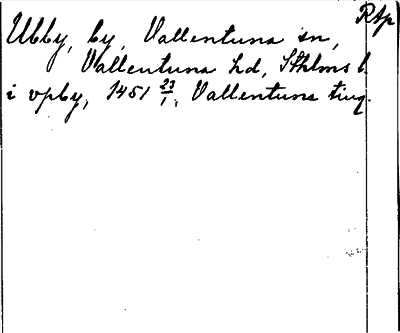 Rtp
Ubby, by, Vallentuna sn,
Vallentuna hd, Sthlms l
i vpby, 1451 23/1, Vallentuna ting.